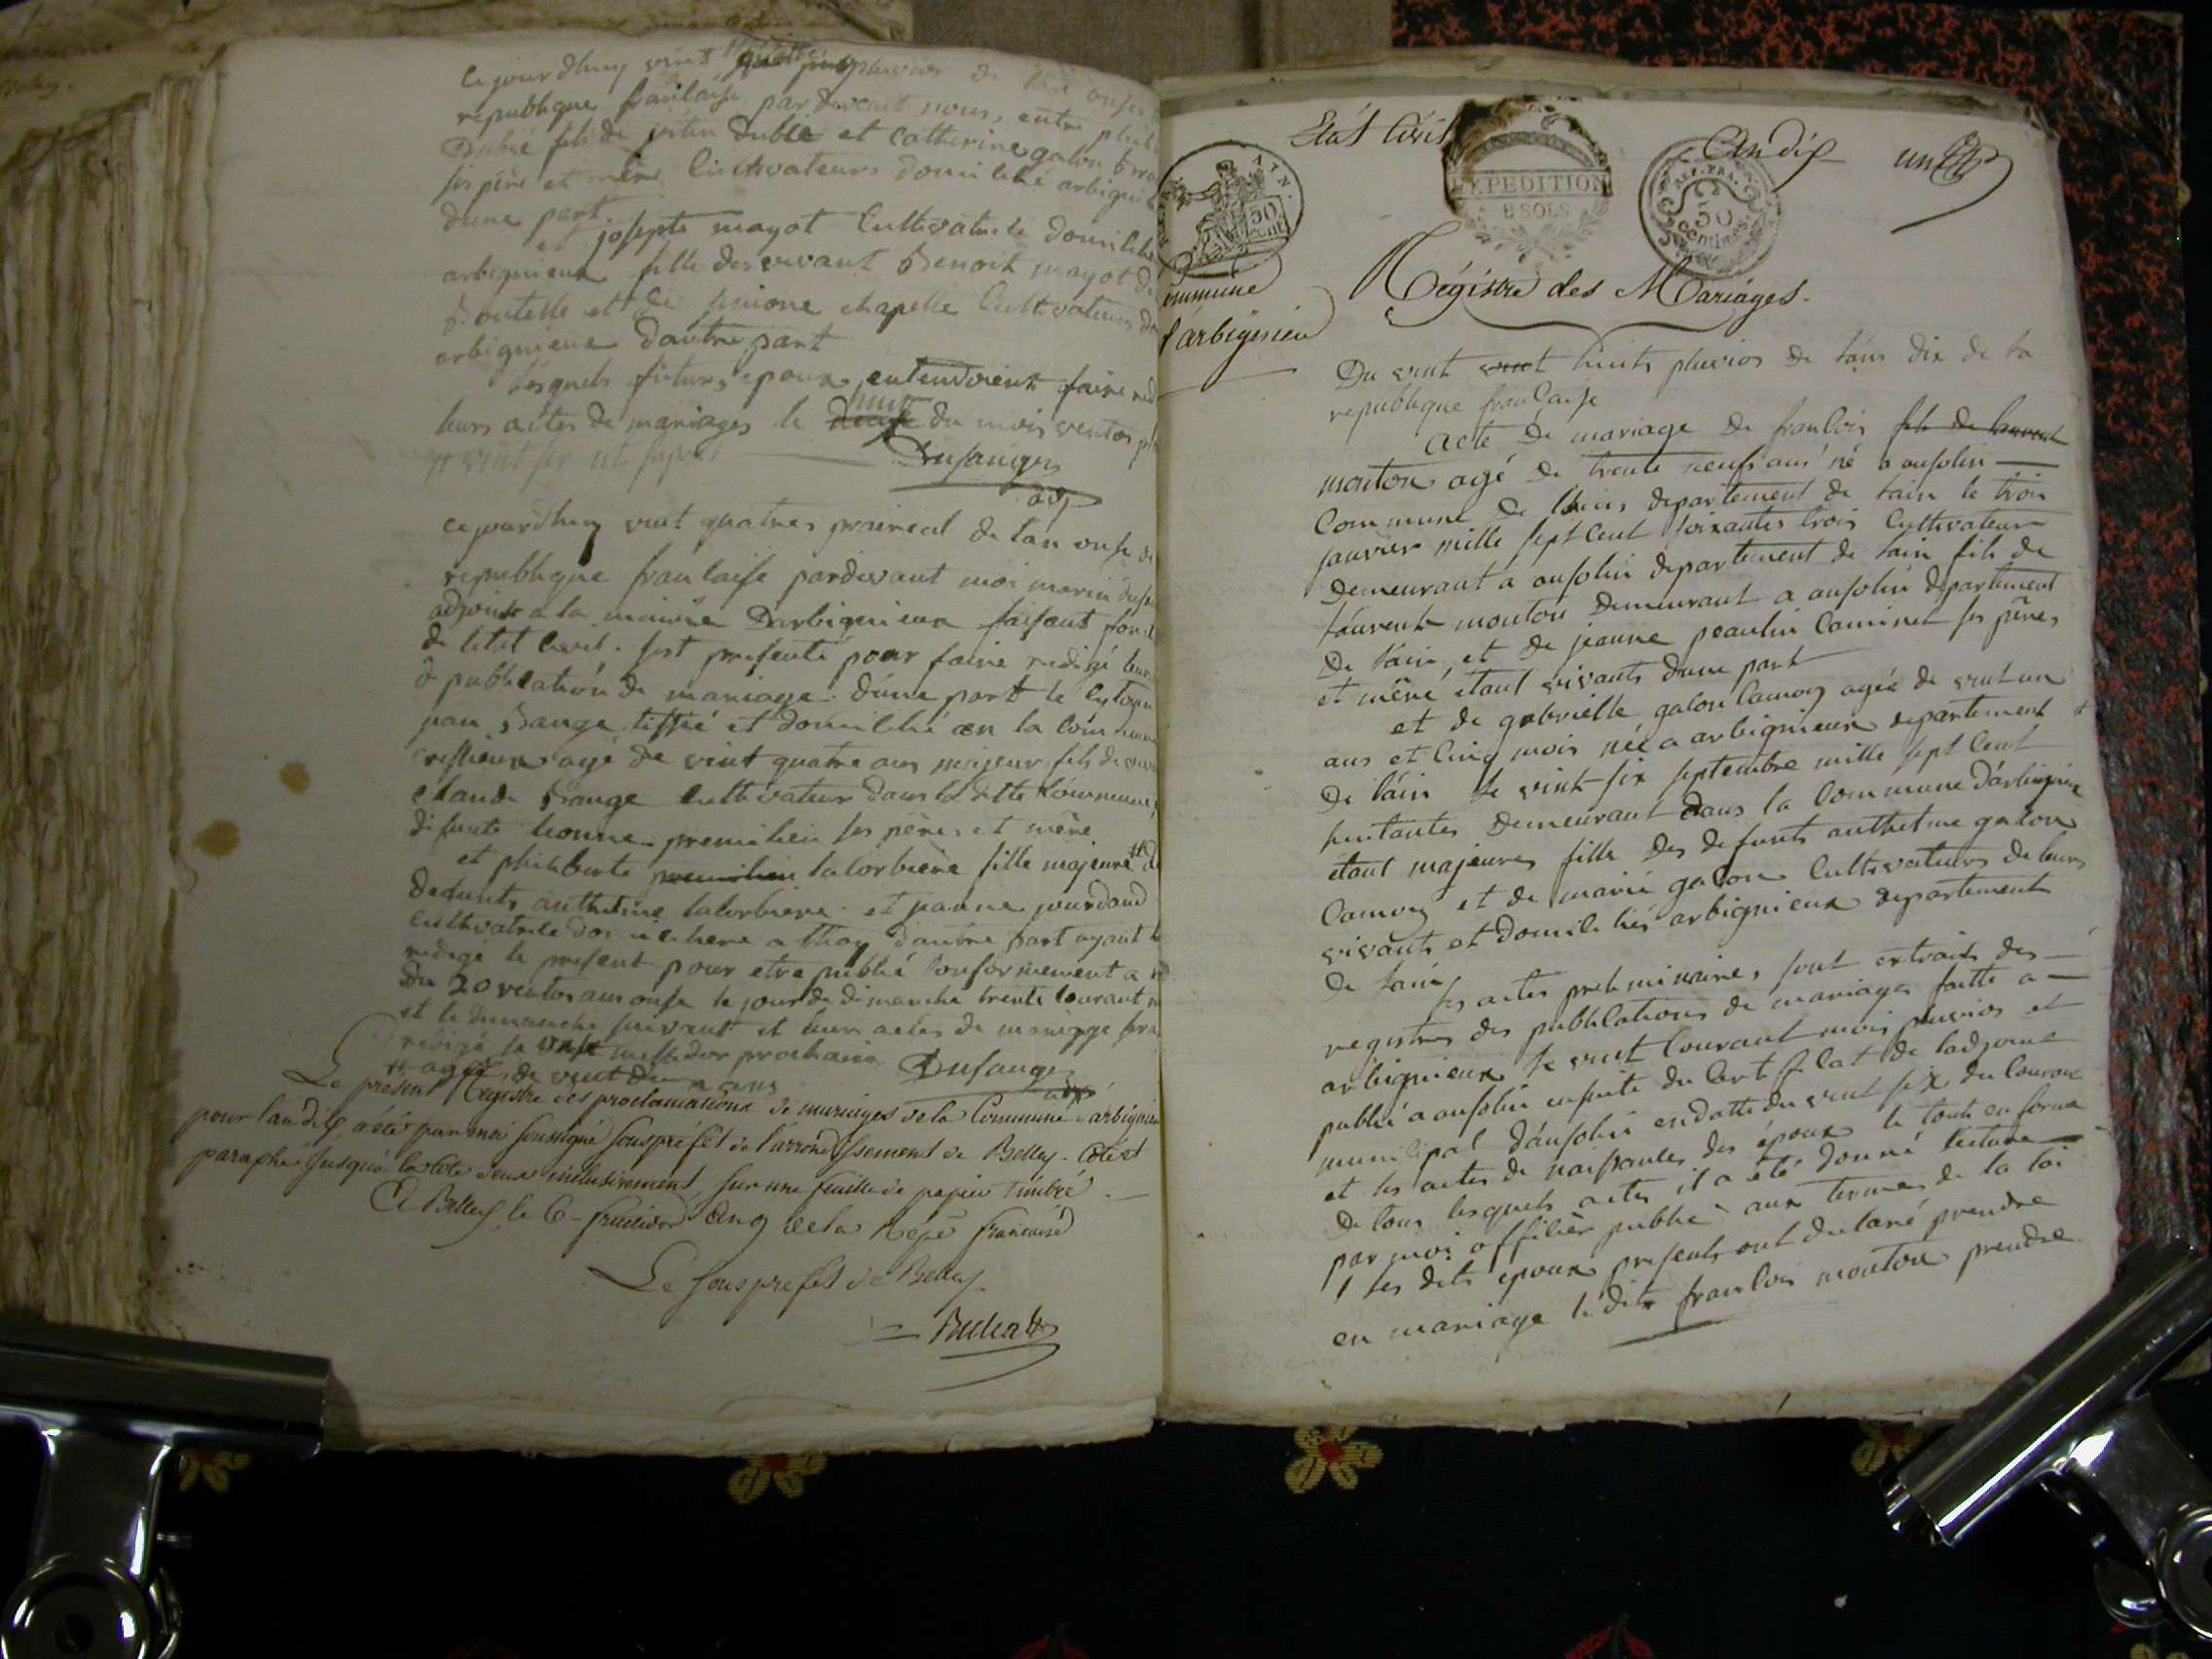 cejourdhuy vint pluvios de lan onse
republique franlaise pardevant nous, entre
Dubié fils de joseph Dubié et Catherine galon
ses père et mère Cultivateurs domicilié arbignieu
dune part.
et josepte mayot Cultivatrice domicilié
arbignieux fille des vivant Benoit mayot
et de simione chapelle Cultivateurs
arbignieux dautre part
lesquels futurs epoux entendoient faire
leurs actes de mariages le huit du mois ventos
vint six
Dusauger
adj
cejourdhuy vint quatres praireal de lan onse de
republique franlaise pardevant moi marin
adjoint a la mairie Darbignieux faisant
de letat Civil. sest presenté pour faire redigé leur
de publication de mariage. dune part le
jean Bauge tissié et domicilié en la Commune
cressieux agé de vint quatre ans majeur fils de
claude Bauge Cultivateur dans la ditte Commune
difunte premilieu ses père et mère
et philiberte premilieu lalorbiere fille majeure
defunts anthelme lalorbiere et jeanne jourdand
cultivatrice a thoy dautre part ayant
redigé le present pour etre publié Conformement a
du 20 ventos ans onse le jour de dimanche trente Courant
et le dimanche suivant et leurs actes de mariage sera
redigé le onse messidor prochain Dusauger
agée de vint deux ans adj
Le présent Régistre des proclamations de mariages de la Commune d'arbignieu
pour l'an dix, a été par moi soussigné souspréfêt de l'arrondissement de Belley. côté et
paraphé jusqu'à la côte deux inclusivement, sur une feuille de papier Timbré.
A Belley le 6 fructidor an 9 de la Répe française
Le souspréfêt de Belley.
État Civil
An dix
un
AIN.
50
cent
EXPEDITION
8 SOLS
REP. FRA.
50
centimes
Commune
d'arbignieu
Régistre des Mariages.
Du vint vint huits pluvios de lans dix de la
republique franlaise
acte de mariage de franlois fils de laurent
mouton agé de trente neufs ans né a ausolin
Commune de departement de lain le trois
janvier mille sept Cent soixantes trois Cultivateur
demeurant a ausolin departement de lain fils de
laurent mouton demeurant a ausolin departement
de lain, et de jeanne peaulin Caminet ses pères
et mère étant vivants dune part
et de gabrielle galon lamoy agée de vint un
ans et Cinq mois née a arbignieux departement
de lain le vint six septembre mille sept Cent
huitantes demeurant dans la Commune Darbignieux
étant majeures fille des defunts anthelme galon
lamoy et de marie galon Cultivateurs de leurs
vivants et domiciliés arbignieux departement
de lain
les actes preliminaires sont extraits des
registres des publications de mariages faitte a
arbignieux le vint Courant mois pluvios et
publié a ausolin ensuite du Certificat de ladjoint
municipal dausolin en datte du vint six du Courant
et les actes de naissances des époux le tout en forme
de tous lesquels actes il a été donné lecture
par moi officier public aux termes de la loi
les dits epoux presents ont declaré prendre
en mariage le dit franlois mouton prendre